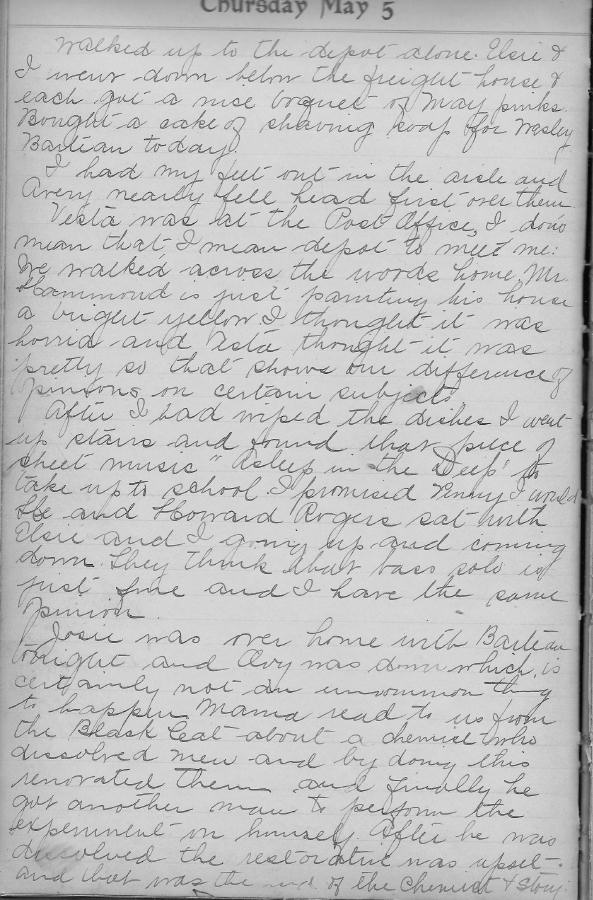 Thursday May 5
Walked up to the depot alone. Elsie &
I went down below the freight house &
each got a nice boquet of May pinks.
Bought a cake of shaving soap for Wesley
Barteau today.
I had my feet out in the aisle and
Avery nearly fell head first over them.
Vesta was at the Post Office, I don't
mean that, I mean depot to meet me.
We walked across the woods home, Mr.
Hammond is just painting his house
a bright yellow I thought it was
horrid and Vesta thought it was
pretty so that shows our difference of
opinions on certain subjects.
After I had wiped the dishes I went
up stairs and found that piece of
sheet music "Asleep in the Deep" to
take up to school I promised I would
He and Howard Rogers sat with
Elsie and I going up and coming
down. They think that bass solo is
just fine and I have the same
opinion.
Josie was over home with Barteau
tonight and was down which is
certainly not an uncommon thing
to happen. Mama read to us from
the Black Cat about a chemist who
dissolved men and by doing this
renovated them and finally he
got another man to perform the
experiment on himself. After he was
dissolved the restorative was upset.
and that was the end of the Chemist & story.